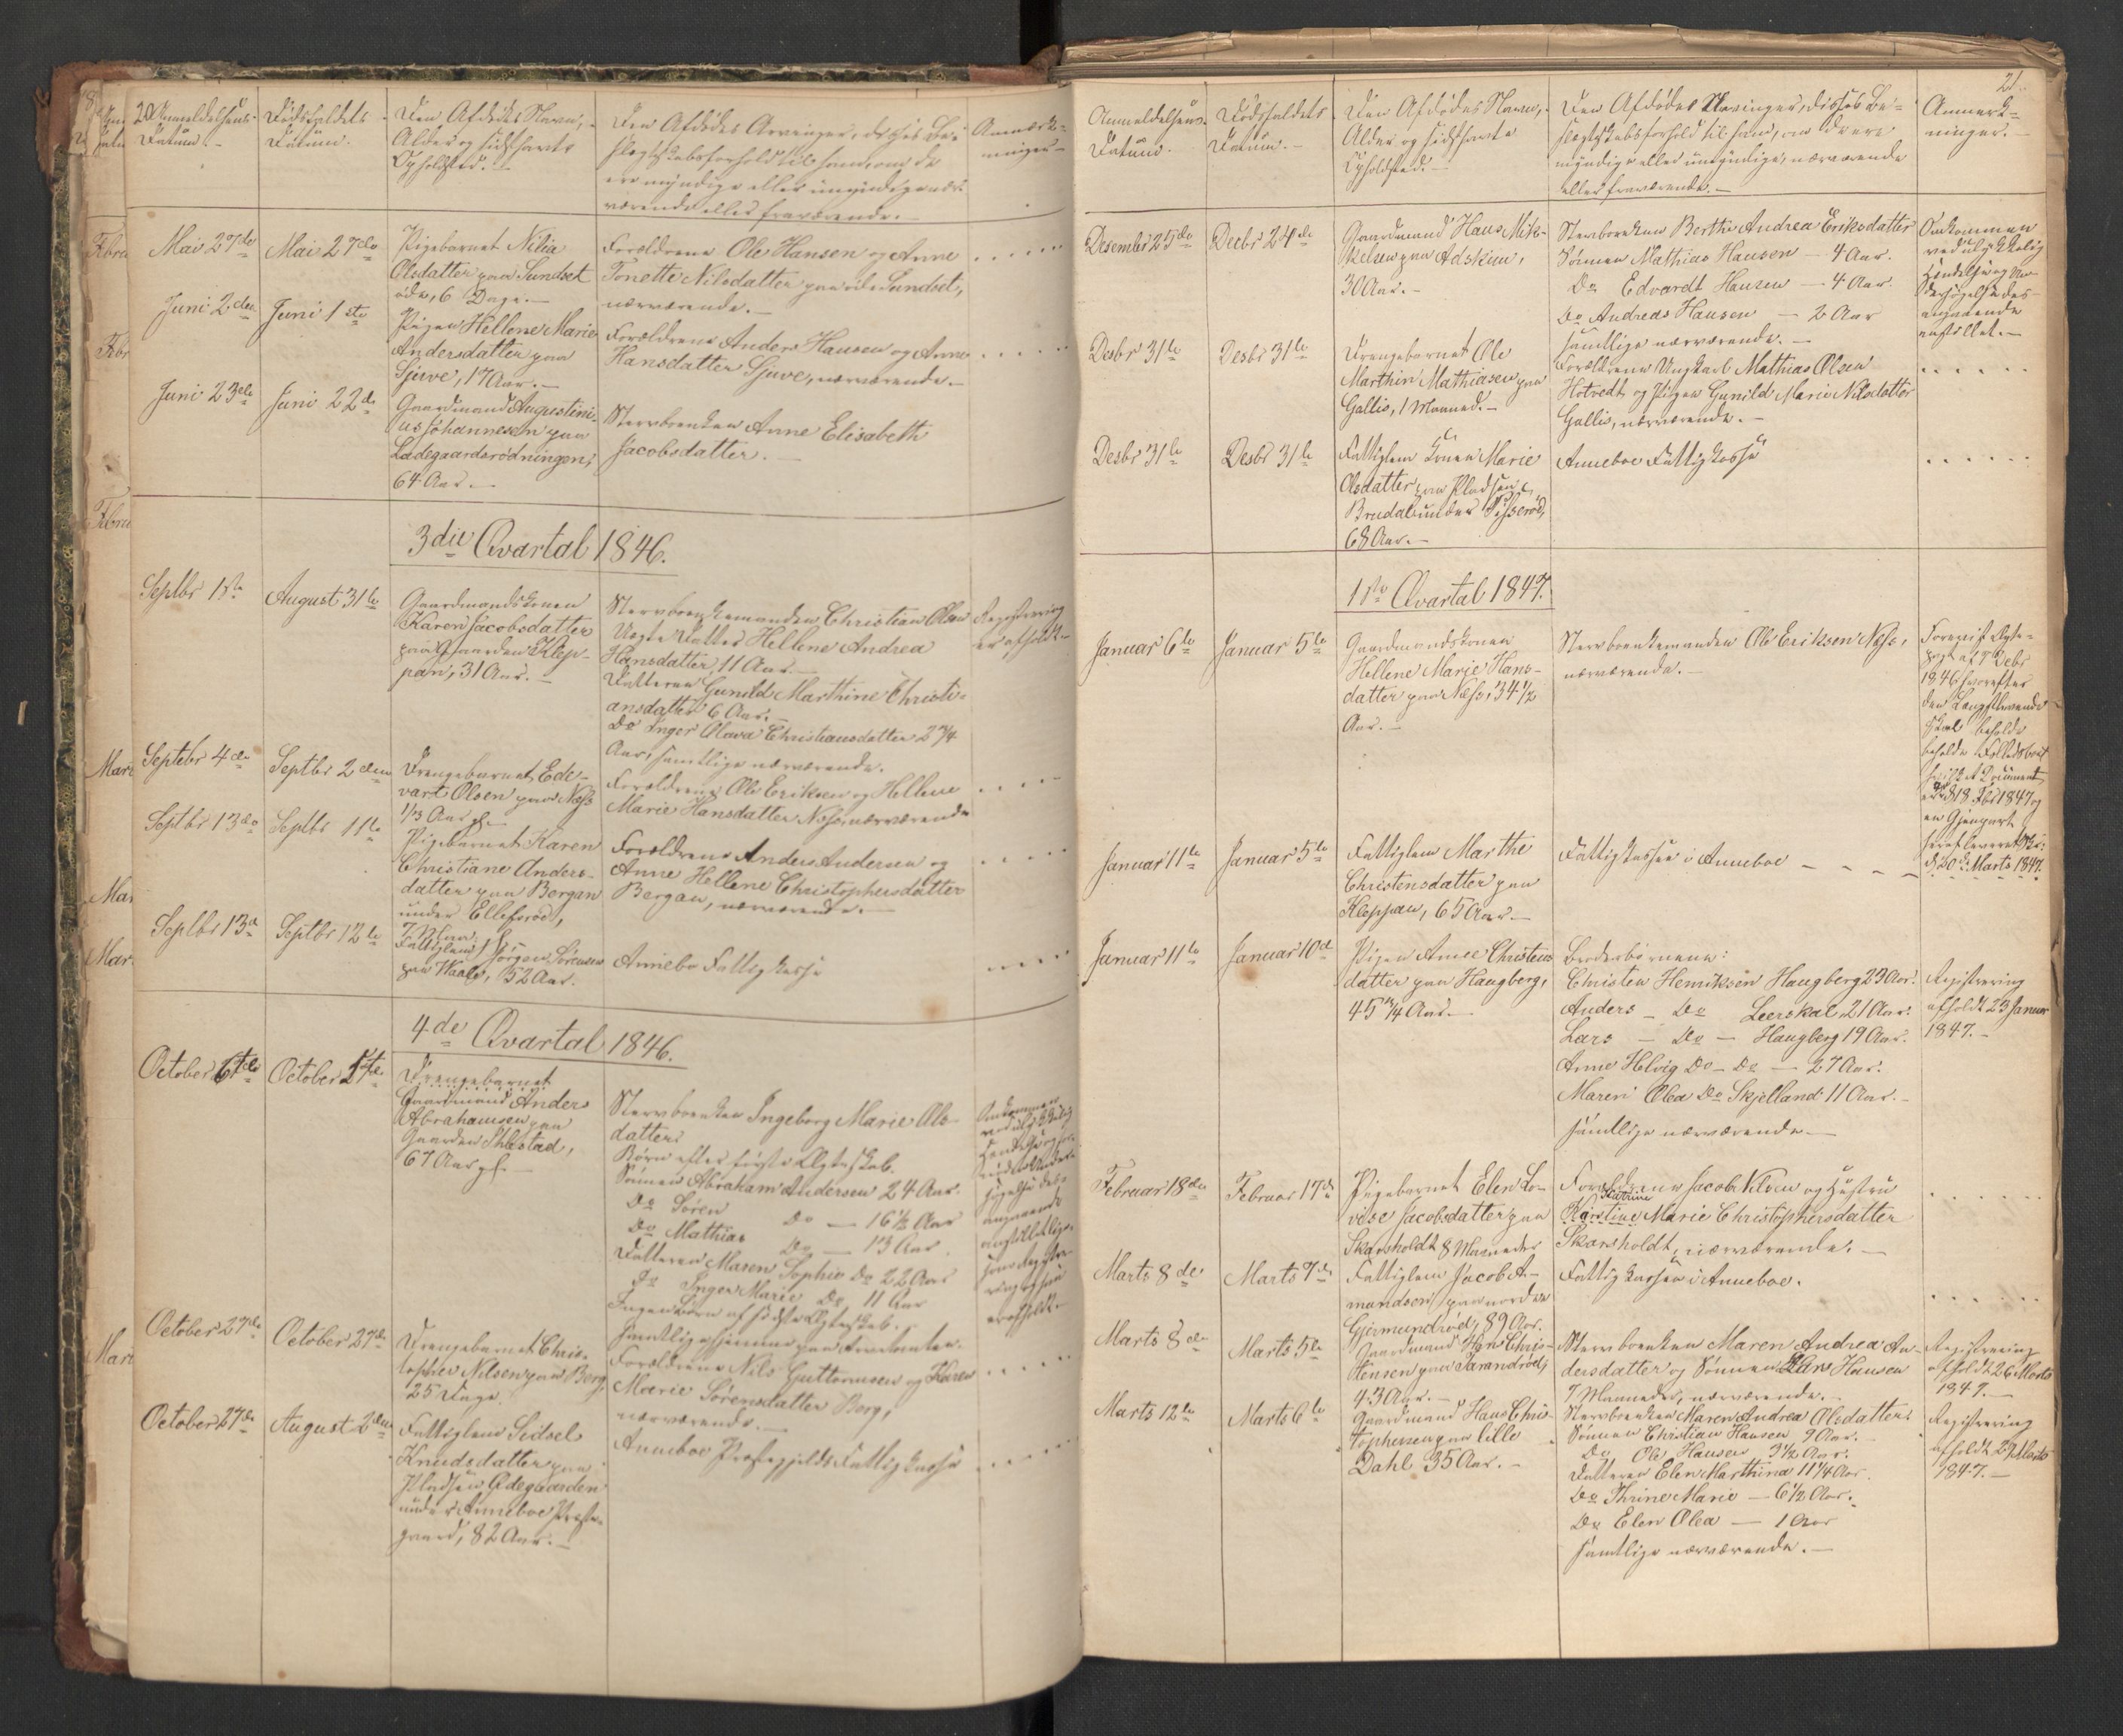 20
Anmeldelsens
Datum.
Dödsfaldets
Datum.
Den Afdödes Navn,
Alder og sidst havte
Opholdsted.
Den Afdödes Arvinger, disses Be-
slegtskabsforhold til ham, om de
ere myndige eller umyndige, nær-
værende eller fraværende.
Anmærk-
ninger.
Mai 27de
Mai 27de
Pigebarnet Nilia
Olsdatter paa Sundset
6 Dage.
Forældrene Ole Hansen og Anne
Tonette Nilsdatter paa Sundset,
nærværende.
Juni 2den
Juni 1ste
Pigen Hellene Marie
Andersdatter paa
Sjuve, 17 Aar.
Forældrene Anders Hansen og Anne
Hansdatter Sjuve, nærværende.
Juni 23de
Juni 22de
Gaardmand Augustini-
us Johannesen paa
Ladegaardsrödningen,
64 Aar.
Stervboenken Anne Elisabeth
Jacobsdatter.
3die Qvartal 1846.
Septbr 1ste
August 31te
Gaardmandskonen
Karen Jacobsdatter
paa Gaarden Klep-
pan, 31 Aar.
Stervboenkemanden Christian Olsen
Uægte Datter Hellene Andrea
Hansdatter 11 Aar.
Datteren Gunild Marthine Christi-
ansdatter 6 Aar.
Do Inger Olava Christiansdatter 2 3/4
Aar, samtlige nærværende.
Registrering
er afholdt.
Septebr 4de
Septbr 2den
Drengebarnet Ed-
vart Olsen paa Næss
1/3 Aar gl.
Forældrene Ole Eriksen og Hellene
Marie Hansdatter Næss, nærværende
Septbr 13de
Septbr 11te
Pigebarnet Karen
Christiane Anders-
datter paa Borgan
under Ellefsröd,
Forældrene Anders Andersen og
Anne Hellene Christophersdatter
Borgan, nærværende.
Septbr 13de
Septbr 12te
Fattiglem Jörgen Sörensen
paa Waale, 52 Aar.
Annebo Fattigkasse
4de Qvartal 1846.
October 6te
October 5te
Drengebarnet
Gaardmand Anders
Abrahamsen paa
Gaarden Ihlestad,
67 Aar gl.
Stervboenken Ingeborg Marie Ols-
datter.
Börn efter förste Ægteskab.
Sönnen Abraham Andersen 24 Aar.
Do Sören Do — 16 1/2 Aar
Do Mathias Do — 13 Aar
Datteren Maren Sophie Do 22 Aar
Do Inger Marie Do 11 Aar
Ingen Börn af sidste Ægteskab.
Samtlige hjemme
Omkommen
ved ulykkelig
Hændelse
October 27de
October 27de
Drengebarnet Chris-
topher Nilsen paa Borg,
25 Dage.
Forældrene Nils Guttormsen og Karen
Marie Sörensdatter Borg,
nærværende.
October 27de
August 2den
Fattiglem Sidsel
Knudsdatter paa
Pladsen Ödegaarden
under Anneboe Præste-
gaard, 82 Aar.
Anneboe Præstegjelds Fattigkasse
21.
Anmeldelsens
Datum.
Dödsfaldets
Datum.
Den Afdödes Navn,
Alder og sidst havte
Opholdsted.
Den Afdödes Arvinger, disses Be-
slægtskabsforhold til ham, om de ere
myndige eller umyndige, nærværende
eller fraværende.
Anmærk-
ninger.
Desember 25de
Decbr 24de
Gaardmand Hans Mik-
kelsen paa Adskim,
30 Aar.
Stervboenken Berthe Andrea Eriksdatter
Sönnen Mathias Hansen — 4 Aar.
Do Edvardt Hansen — 4 Aar.
Do Andreas Hansen — 2 Aar
samtlige nærværende.
Omkommen
ved ulykkelig
Hændelse og Un-
dersögelse des-
angaaende
anstillet.
Desbr 31te
Desbr 31te
Drengebarnet Ole
Marthin Mathiasen paa
Gallis, 1 Maaned.
Forældrene Ungkarl Mathias Olsen
Hotvedt og Pigen Gunild Marie Nilsdatter
Gallis, nærværende.
Desbr 31te
Desbr 31te
Fattiglem Konen Marie
Olsdatter paa Pladsen
Brudal under
68 Aar.
Anneboe Fattigkasse
1ste Qvartal 1847.
Januar 6te
Januar 5te
Gaardmandskonen
Hellene Marie Hans-
datter paa Næss, 34 1/2
Aar.
Stervboenkemanden Ole Eriksen Næss,
nærværende.
1846 hvorefter
den Længstlevende
skal beholde
beholde Fælledsboet
hvilket Document
18 Fbr 1847 og
en Gjenpart
heraf leveret
d 20de Marts 1847.
Januar 11te
Januar 5te
Fattiglem Marthe
Christensdatter paa
Kleppan, 65 Aar.
Fattigkassen i Anneboe
Januar 11te
Januar 10de
Pigen Anne Christens
datter paa Haugberg,
45 3/4 Aar.
Broderbörnene:
Christen Henriksen Haugberg 23 Aar.
Anders — Do Leerskal 21 Aar.
Lars — Do — Haugberg 19 Aar.
Anne Helvig Do — Do — 27 Aar.
Maren Olea Do Skjelland 11 Aar.
samtlige nærværende.
Registrering
afholdt 23 Januar
1847.
Februar 18de
Februar 17de
Pigebarnet Elen Lo-
vise Jacobsdatter paa
Skarsholdt 8 Maaneder
Forældrene Jacob Nilsen og Hustru
Karine
Karoline Marie Christophersdatter
Skarsholdt, nærværende.
Marts 8de
Marts 7de
Fattiglem Jacob A-
mundsen paa nordre
Gjermundröd, 89 Aar.
Fattigkassen i Anneboe.
Marts 8de
Marts 5te
Gaardmand Hans Chris-
tensen paa Tarandröd,
43 Aar.
Stervboenken Maren Andrea An-
dersdatter og Sönnen Lars Hansen
7 Maaneder, nærværende.
Registrering
afholdt 26 Marts
1847.
Marts 12te
Marts 6te
Gaardmand Hans Chris-
tophersen paa lille
Dahl 35 Aar.
Stervboenken Maren Andrea Olsdatter.
Sönnen Christian Hansen 9 Aar.
Do Ole Hansen 3 1/2 Aar.
Datteren Elen Marthina 11 1/4 Aar.
Do Thrine Marie — 6 1/2 Aar.
Do Elen Olea — 1 Aar
samtlige nærværende.
Registrering
afholdt 29 Marts
1847.